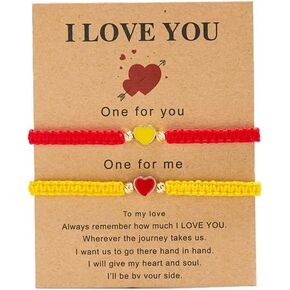 I LOVE YOU
One for you
One for me
To my love
Always remember how much I LOVE YOU.
Wherever the journey takes us.
I want us to go there hand in hand.
I will give my heart and soul.
I'll be by your side.